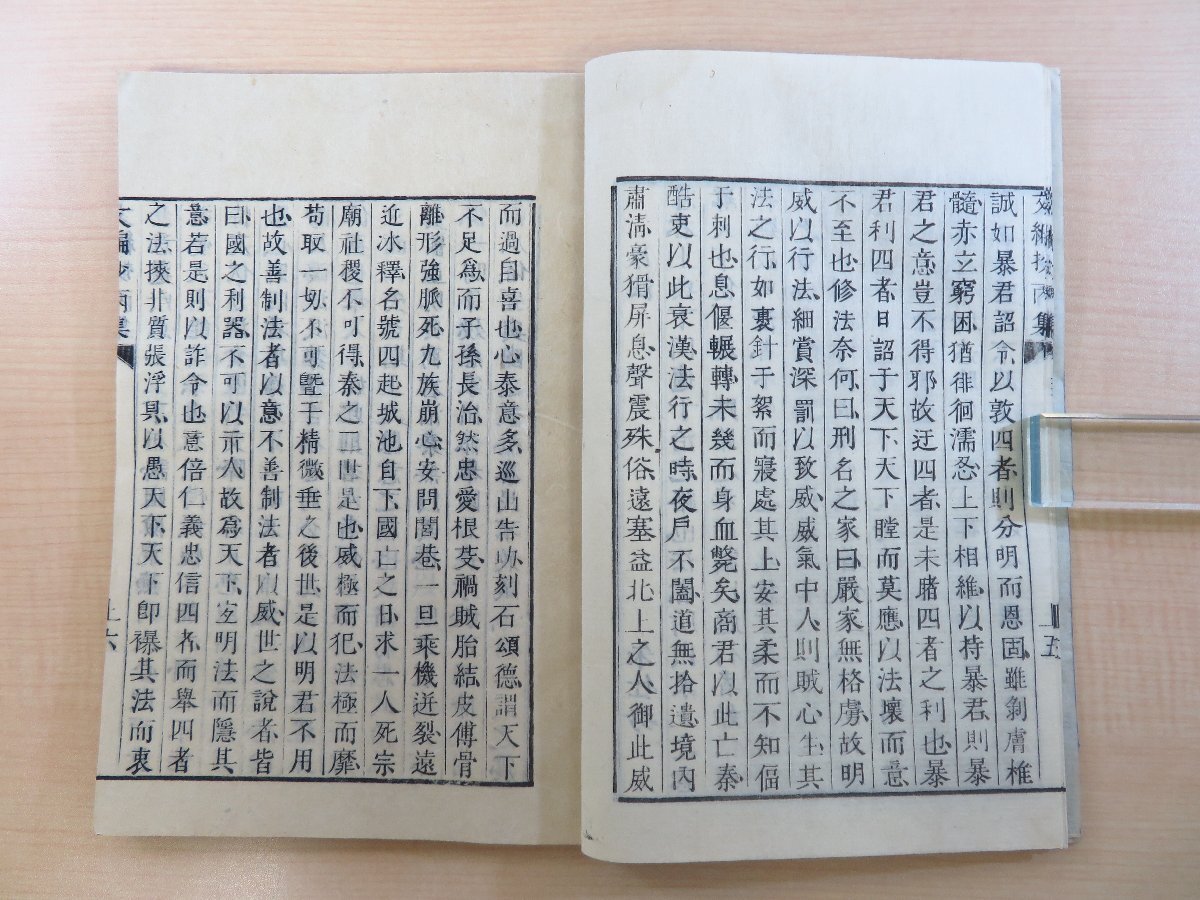 誠如暴君詔令以敦四者則分明而恩固雖剝膚椎
髓亦立窮困猶徘徊濡忍上下相維以持暴君則暴
君之意豈不得耶故迂四者是未睹四者之利也暴
君利四者日詔于天下天下瞠而莫應以法壞而意
不至也修法奈何曰刑名之家曰嚴家無格虜故明
威以行法細賞深罰以致威威氣中人則賊心生其
法之行如裹針于絮而寢處其上安其柔而不知偪
于刺也息偃輾轉未幾而身血斃矣商君以此亡秦
酷吏以此衰漢法行之時夜戶不闔道無拾遺境內
肅淸豪猾屏息聲震殊俗遠塞益北上之人御此威
而過自喜也心泰意多巡山告功刻石頌德謂天下
不足爲而子孫長治然忠愛根芟禍賊胎結皮傅骨
離形強脈死九族崩心安問閭巷一旦乘機迸裂遠
近冰釋名號四起城池自下國亡之日求一人死宗
廟社稷不可得秦之二世是也威極而犯法極而靡
苟取一切不可曁于精微垂之後世是以明君不用
也故善制法者以意不善制法者以威世之說者皆
曰國之利器不可以示人故爲天下宜明法而隱其
意若是則以詐令也意倍仁義忠信四者而舉四者
之法挾非質張浮具以愚天下天下卽襮其法而衷
文編抄丙集